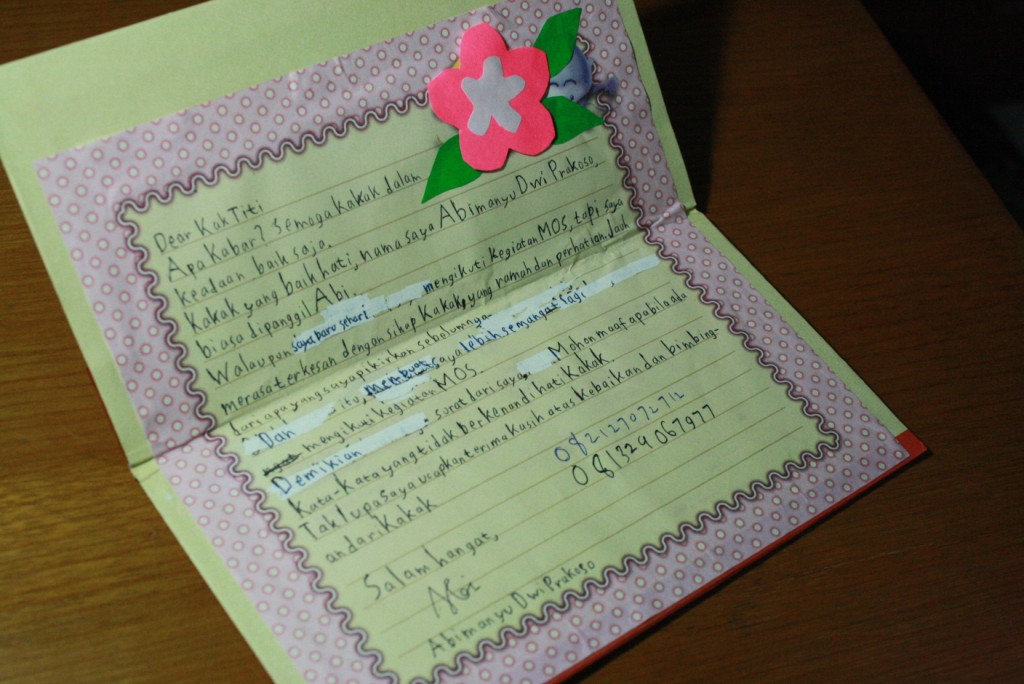 Dear Kak Titi
Apa Kabar? Semoga Kakak dalam
Keadaan baik saja.
Kakak yang baik hati, nama saya Abimanyu Dwi Prakoso,
biasa dipanggil Abi.
Walaupun saya baru sehari mengikuti kegiatan MOS, tapi saya
merasa terkesan dengan sikap Kakak, yang ramah dan perhatian. Jauh
dari apa yang saya pikirkan sebelumnya
Dan itu membuat saya lebih semangat lagi
mengikuti kegiatan MOS.
Demikian surat dari saya. Mohon maaf apabila ada
Kata-Kata yang tidak berkenan di hati Kakak
Tak lupa saya ucapkan terima kasih atas kebaikan dan bimbing-
an dari Kakak
082127072712
081329067977
Salam hangat,
Abi
Abimanyu Dwi Prakoso